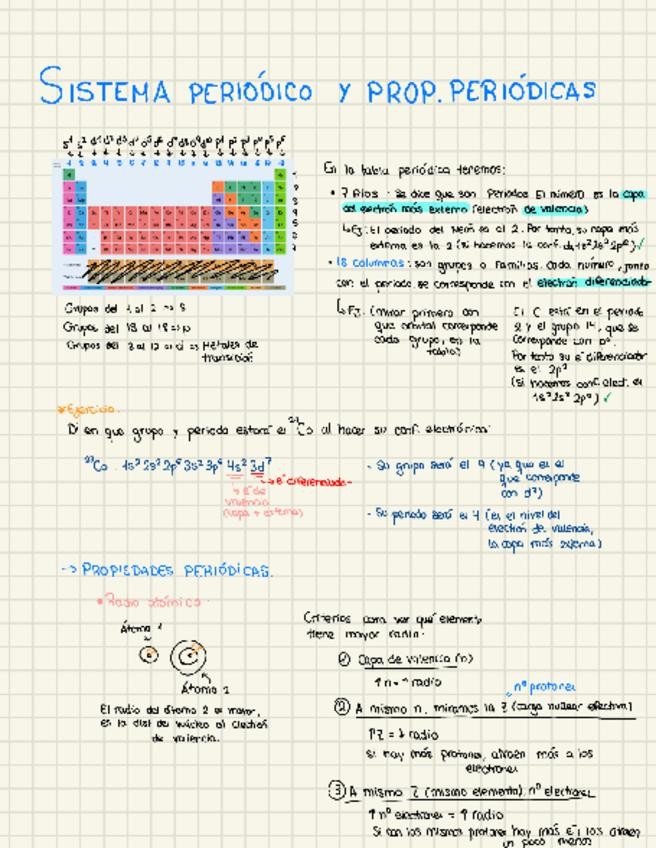 SISTEMA PERIÓDICO Y PROP. PERIÓDICAS
s¹ s² d¹ d² d³ d⁴ d⁵ d⁶ d⁷ d⁸ d⁹ d¹⁰ p¹ p² p³ p⁴ p⁵ p⁶
Grupos del 1 al 2 => s
Grupos del 13 al 18 => p
Grupos del 3 al 12 => d => Metales de
transición
En la tabla periódica tenemos:
• 7 filas: Se dice que son Periodos El número es la capa
del electrón más externo (electrón de valencia)
↳ Ej: El periodo del Neón es al 2. Por tanto, su capa más
externa es la 2 (si hacemos la conf. 1s²2s²2p⁶) ✓
• 18 columnas: son grupos o familias. Cada número, junto
con el periodo, se corresponde con el electrón diferenciador
↳ Ej. (mirar primero con
que orbital corresponde
cada grupo, en la
tabla)
El C está en el periodo
2 y el grupo 14, que se
corresponde con p².
Por tanto su e⁻ diferenciador
es el 2p²
(si hacemos conf. elect. es
1s²2s²2p²) ✓
*Ejercicio.
Di en que grupo y periodo estará el ²⁷Co al hacer su conf. electrónica:
²⁷Co: 1s² 2s² 2p⁶ 3s² 3p⁶ 4s² 3d⁷
→ e⁻ diferenciador
→ e⁻ de
valencia
(capa + externa)
- Su grupo será el 9 (ya que es el
que corresponde
con d⁷)
- Su periodo será el 4 (es el nivel del
electrón de valencia,
la capa más externa)
-> PROPIEDADES PERIÓDICAS.
*Radio atómico.
Átomo 1
Átomo 2
El radio del átomo 2 es mayor,
es la dist del núcleo al electrón
de valencia.
Criterios para ver qué elemento
tiene mayor radio.
① Capa de valencia (n)
↑ n = ↑ radio
nº protones
② A mismo n, miramos la Z (carga nuclear efectiva)
↑Z = ↓ radio
si hay más protones, atraen más a los
electrones
③ A mismo Z (mismo elemento), nº electrones
↑ nº electrones = ↑ radio
Si con los mismos protones hay más e⁻, los atraen
un poco menos